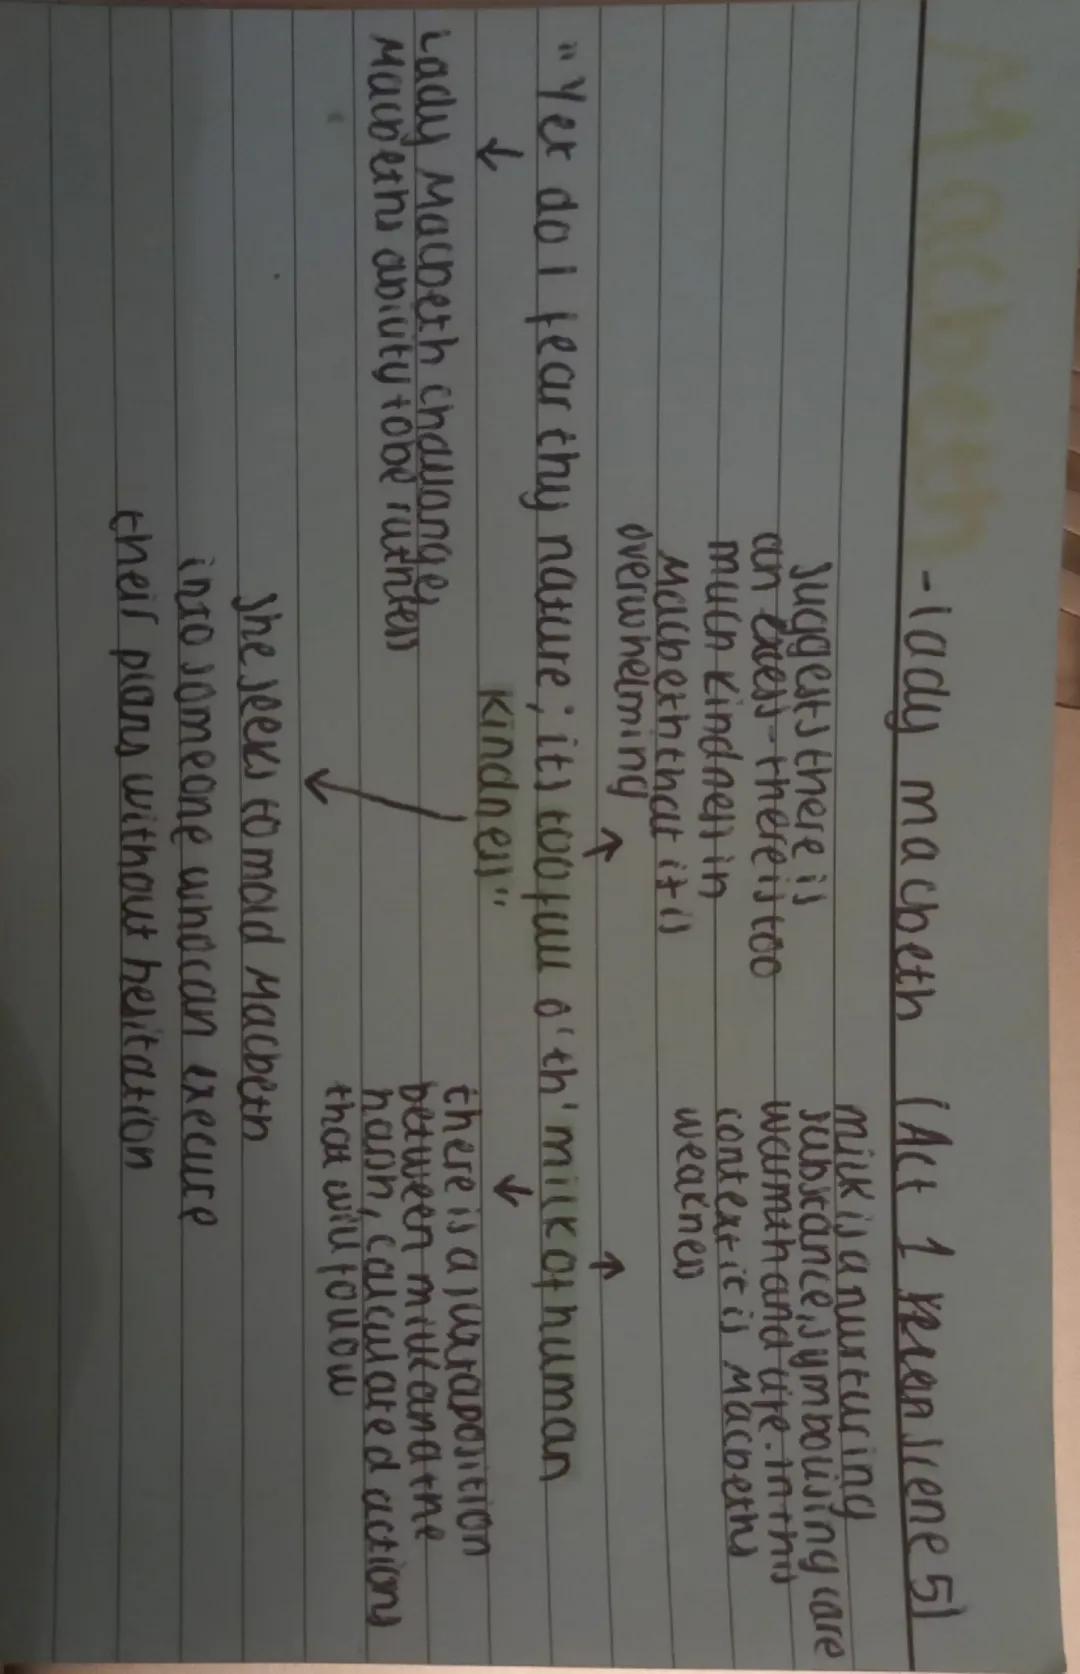 Macbeth - lady macbeth (Act 1 scene 5)
suggests there is
an exess - there is too
much kindness in
Macbeth that it is
overwhelming
milk is a nurturing
substance, symbolising care
warmth and life. In this
context it is Macbeths
weakness
"Yet do I fear thy nature; its too full o'th' milk of human
kindness"
Lady Macbeth challanges
Macbeths ability to be ruthless
there is a juxtaposition
between milk and the
harsh, calculated actions
that will follow
she seeks to mold Macbeth
into someone who can execute
their plans without hesitation